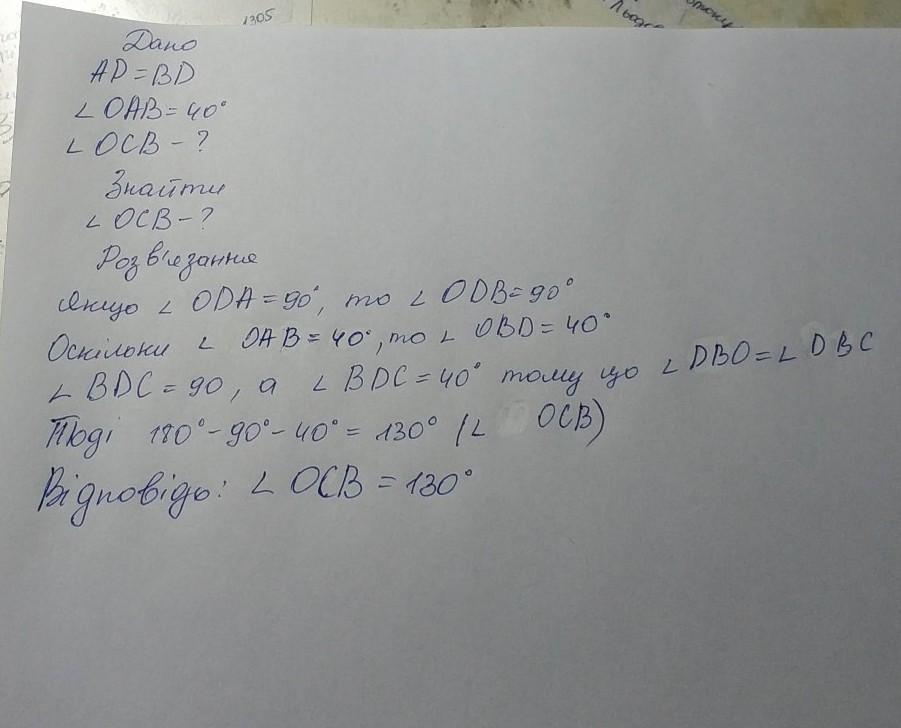 1305
Дано
AD = BD
∠ OAB = 40°
∠ OCB - ?
Знайти
∠ OCB - ?
Розв'язання
Якщо ∠ ODA = 90°, то ∠ ODB = 90°
Оскільки ∠ OAB = 40°, то ∠ OBD = 40°
∠ BDC = 90, а ∠ BDC = 40° тому що ∠ DBO = ∠ DBC
Тоді 180° - 90° - 40° = 130° (∠ OCB)
Відповідь: ∠ OCB = 130°